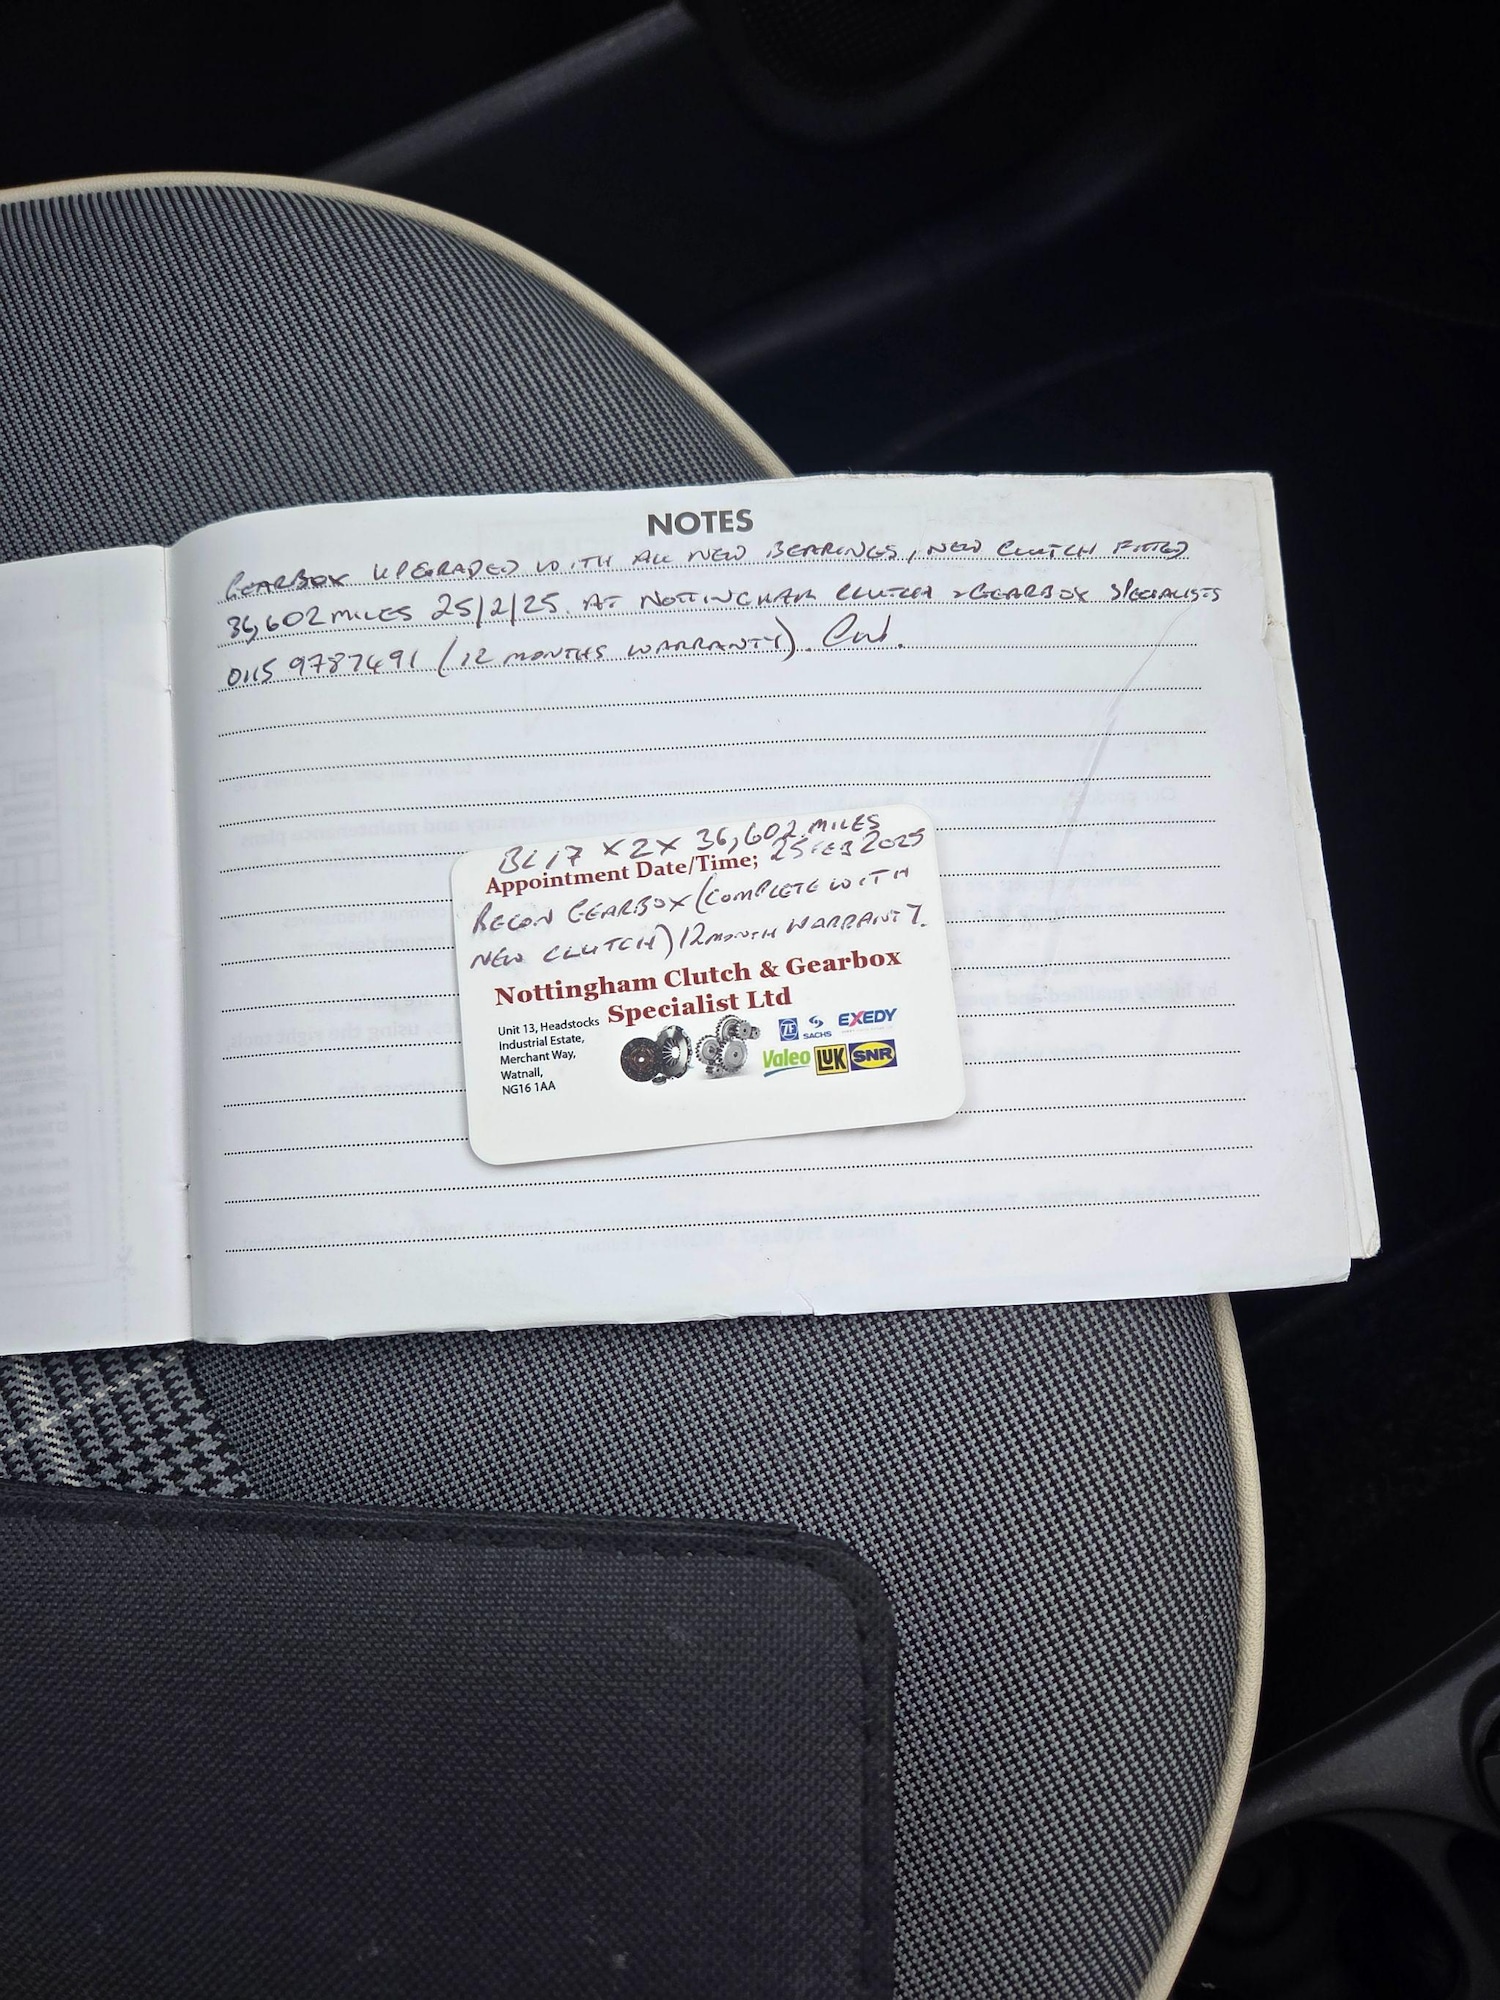 NOTES
GEARBOX UPGRADED WITH ALL NEW BEARINGS, NEW CLUTCH FITTED
36,602 MILES 25/2/25 AT NOTTINGHAM CLUTCH & GEARBOX SPECIALISTS
0115 9787491 (12 MONTHS WARRANTY).
BL17 X2X 36,602 MILES
Appointment Date/Time; 25 FEB 2025
RECON GEARBOX (COMPLETE WITH
NEW CLUTCH) 12 MONTH WARRANTY.
Nottingham Clutch & Gearbox
Specialist Ltd
Unit 13, Headstocks
Industrial Estate,
Merchant Way,
Watnall,
NG16 1AA
ZF SACHS EXEDY
Valeo LUK SNR